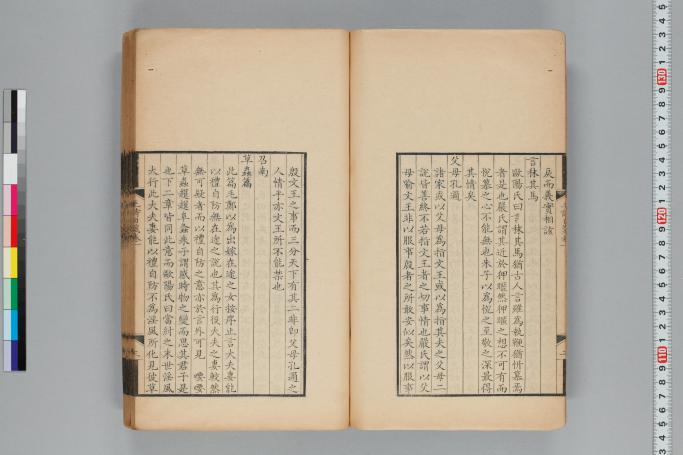 反而義實相該
言秣其馬
歐陽氏曰言秣其馬猶古人言雖為執鞭猶忻慕焉
者是也嚴氏謂其近於狎暱然狎暱之想不可有而
悅慕之心不能無也朱子以為悅之至敬之深最得
其情矣
父母孔邇
諸家或以父母為指文王或以為指其夫之父母二
說皆善終不若指文王者之切事情也嚴氏謂以父
母喻文王非以服事殷者之所敢安似矣然以服事
殷文王之事而三分天下有其二非卽父母孔邇之
人情乎亦文王所不能禁也
召南
草蟲篇
此篇毛鄭以為出嫁在途之女按序止言大夫妻能
以禮自防無在途之說也其為行役大夫之妻較然
無可疑者而以禮自防之意亦於言外可見 喓喓
草蟲趯趯阜螽朱子謂感時物之變而思其君子是
也下二章皆同此意而歐陽氏曰當紂之末世淫風
大行此大夫妻能以禮自防不為淫風所化見彼草